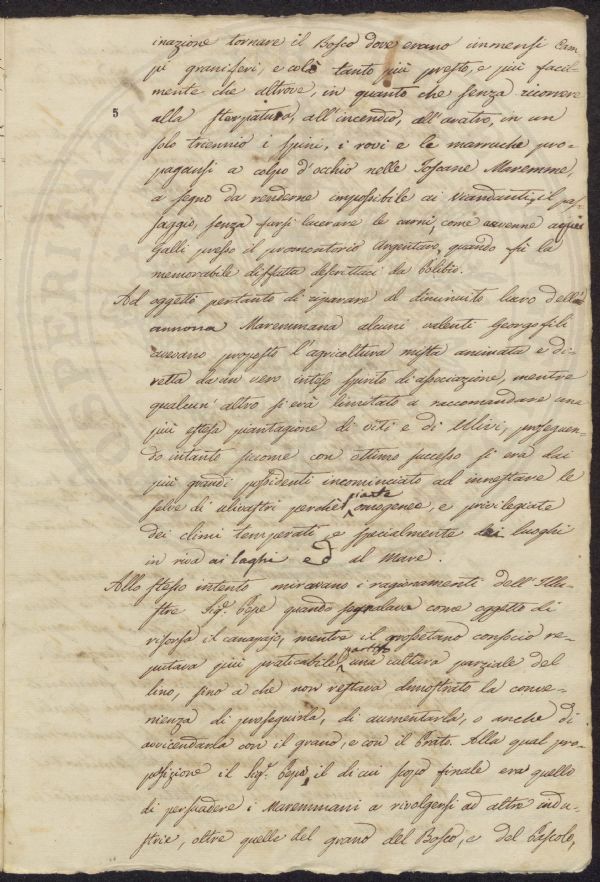 inazione tornare il Bosco dove erano immensi Cam
pi graniferi, e colà tanto più presto, e più facil
mente che altrove, in quanto che senza ricorrere
5
alla sterpatura, all'incendio, all'aratro, in un
solo triennio i spini, i rovi e le marruche pro-
pagansi a colpo d'occhio nelle Toscane Maremme,
a segno da renderne impossibile ai viandanti, il pas
saggio, senza farsi lacerare le carni, come avvenne ai
Galli presso il promontorio Argentaro, quando fù la
memorabile disfatta descrittaci da Polibio.
Ad oggetto pertanto di riparare al diminuito lucro dell'
annona Maremmana alcuni valenti Georgofili
avevano proposto l'agricoltura mista animata e di-
retta da un vero inteso spirito di associazione, mentre
qualcun'altro si era limitato a raccomandare una
più estesa piantagione di viti e di Ulivi, proseguen-
do intanto siccome con ottimo successo si era dai
più grandi possidenti incominciato ad innestare le
selve di olivastri perchè piante omogenee, e privilegiate
dei climi temperati, e specialmente dei luoghi
in riva ai laghi ed al Mare.
Allo stesso intento miravano i ragionamenti dell'Illu-
stre Sig.r Pepe quando segnalava come oggetto di
risorsa il canapajo, mentre il grossetano consocio re-
putava più praticabile una cultura parziale del
lino, fino a che non restava dimostrato la conve-
nienza di proseguirla, di aumentarla, o anche di
avvicendarla con il grano, e con il Prato. Alla qual pro-
posizione il Sig.r Pepe, il di cui scopo finale era quello
di persuadere i Maremmani a rivolgersi ad altre indu-
strie, oltre quelle del grano del Bosco, e del Pascolo,